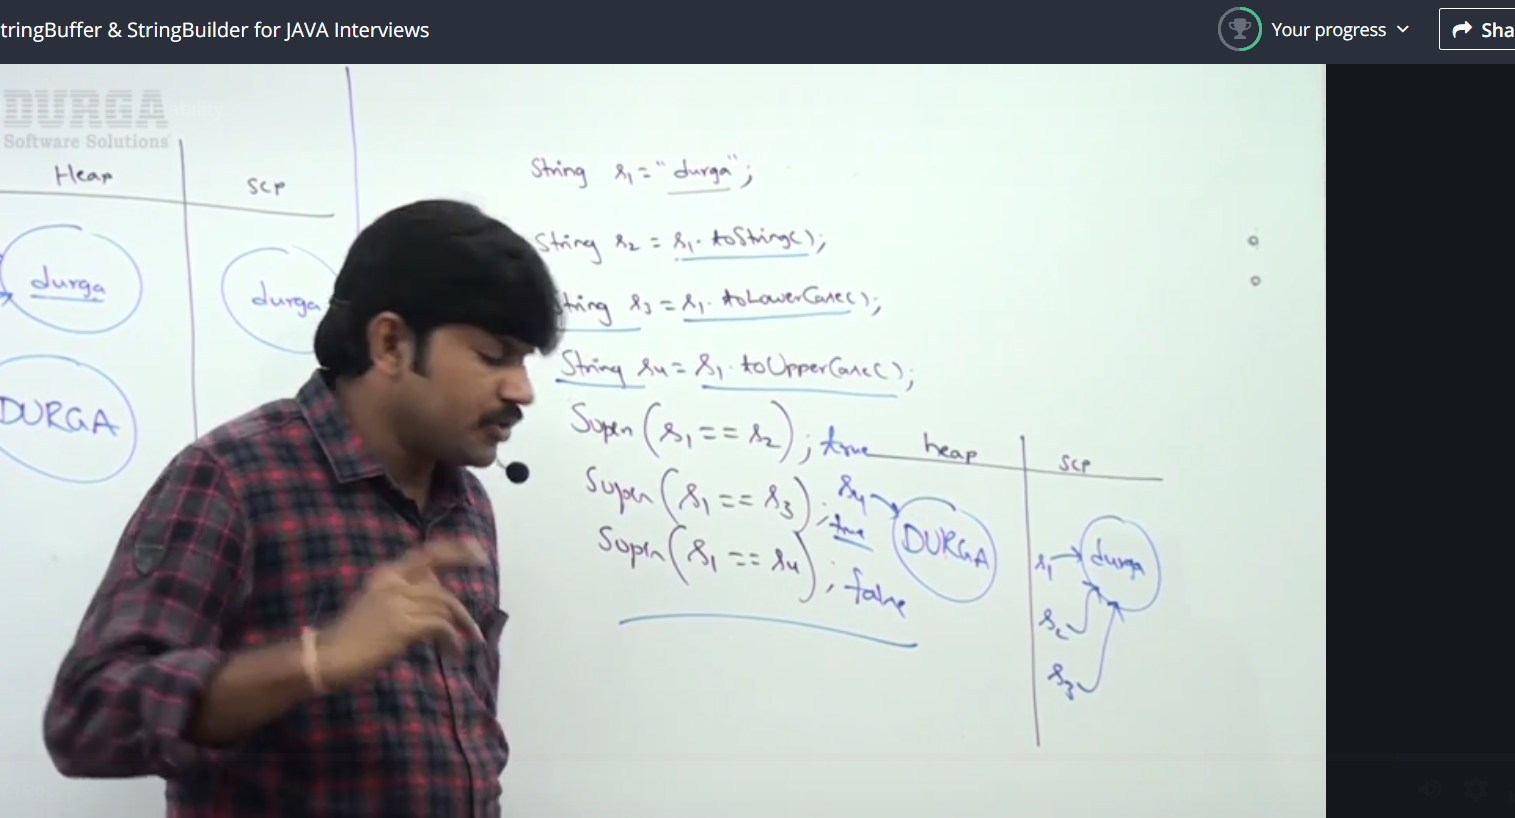 tringBuffer & StringBuilder for JAVA Interviews
Your progress
Sha
DURGA
Software Solutions
Heap
SCP
durga
durga
DURGA
String s1 = "durga";
String s2 = s1.toString();
tring s3 = s1.toLowerCase();
String s4 = s1.toUpperCase();
Sopln(s1 == s2); true
Sopln(s1 == s3); true
Sopln(s1 == s4); false
heap
SCP
s4
DURGA
s1
durga
s2
s3